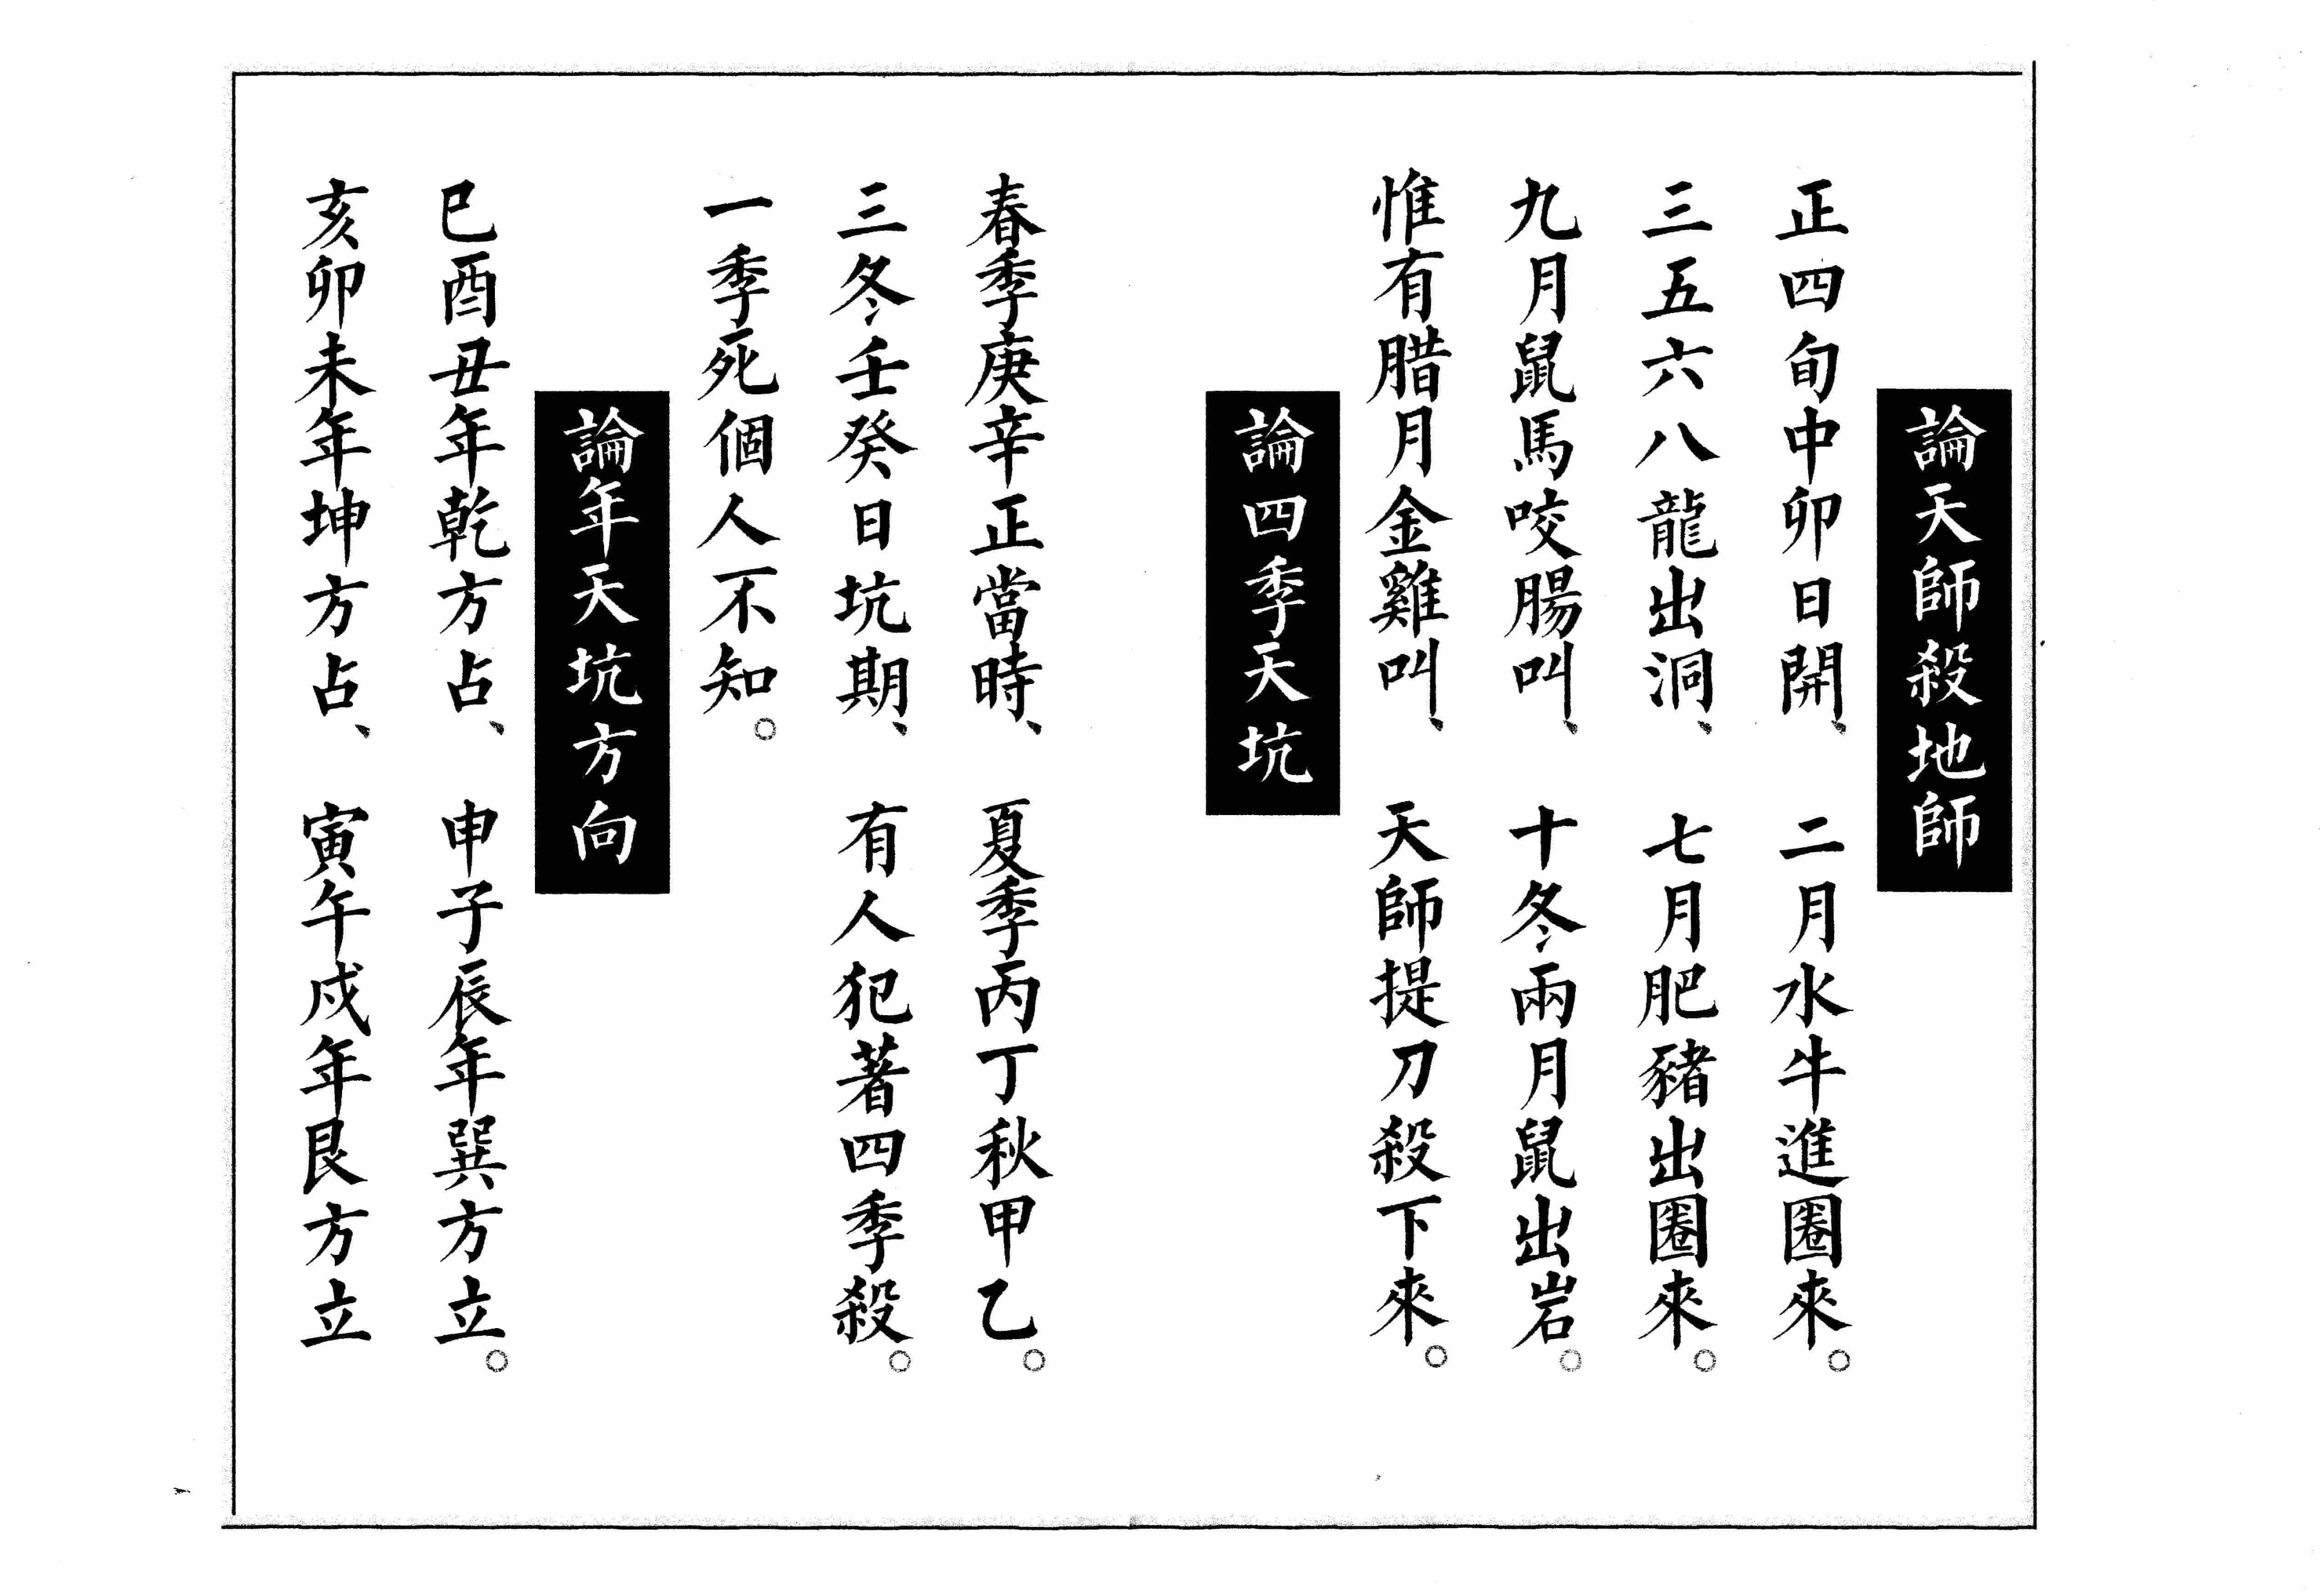 論天師殺地師
正四旬中卯日開、　二月水牛進圈來。
三五六八龍出洞、　七月肥豬出圈來。
九月鼠馬咬腸叫、　十冬兩月鼠出岩。
惟有腊月金雞叫、　天師提刀殺下來。
論四季天坑
春季庚辛正當時、　夏季丙丁秋甲乙。
三冬壬癸日坑期、　有人犯著四季殺。
一季死個人不知。
論年天坑方向
巳酉丑年乾方占、　申子辰年巽方立。
亥卯未年坤方占、　寅午戍年艮方立